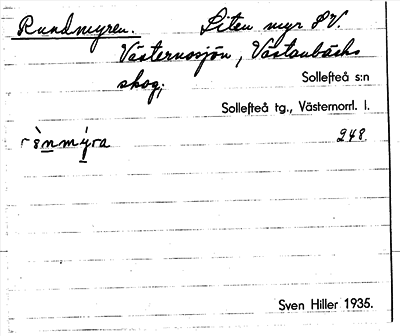 Rundmyren. Liten myr S.V.
Västernosjön, Västanbäcks
skog;
Sollefteå s:n
Sollefteå tg., Västernorrl. l.
248.
Sven Hiller 1935.